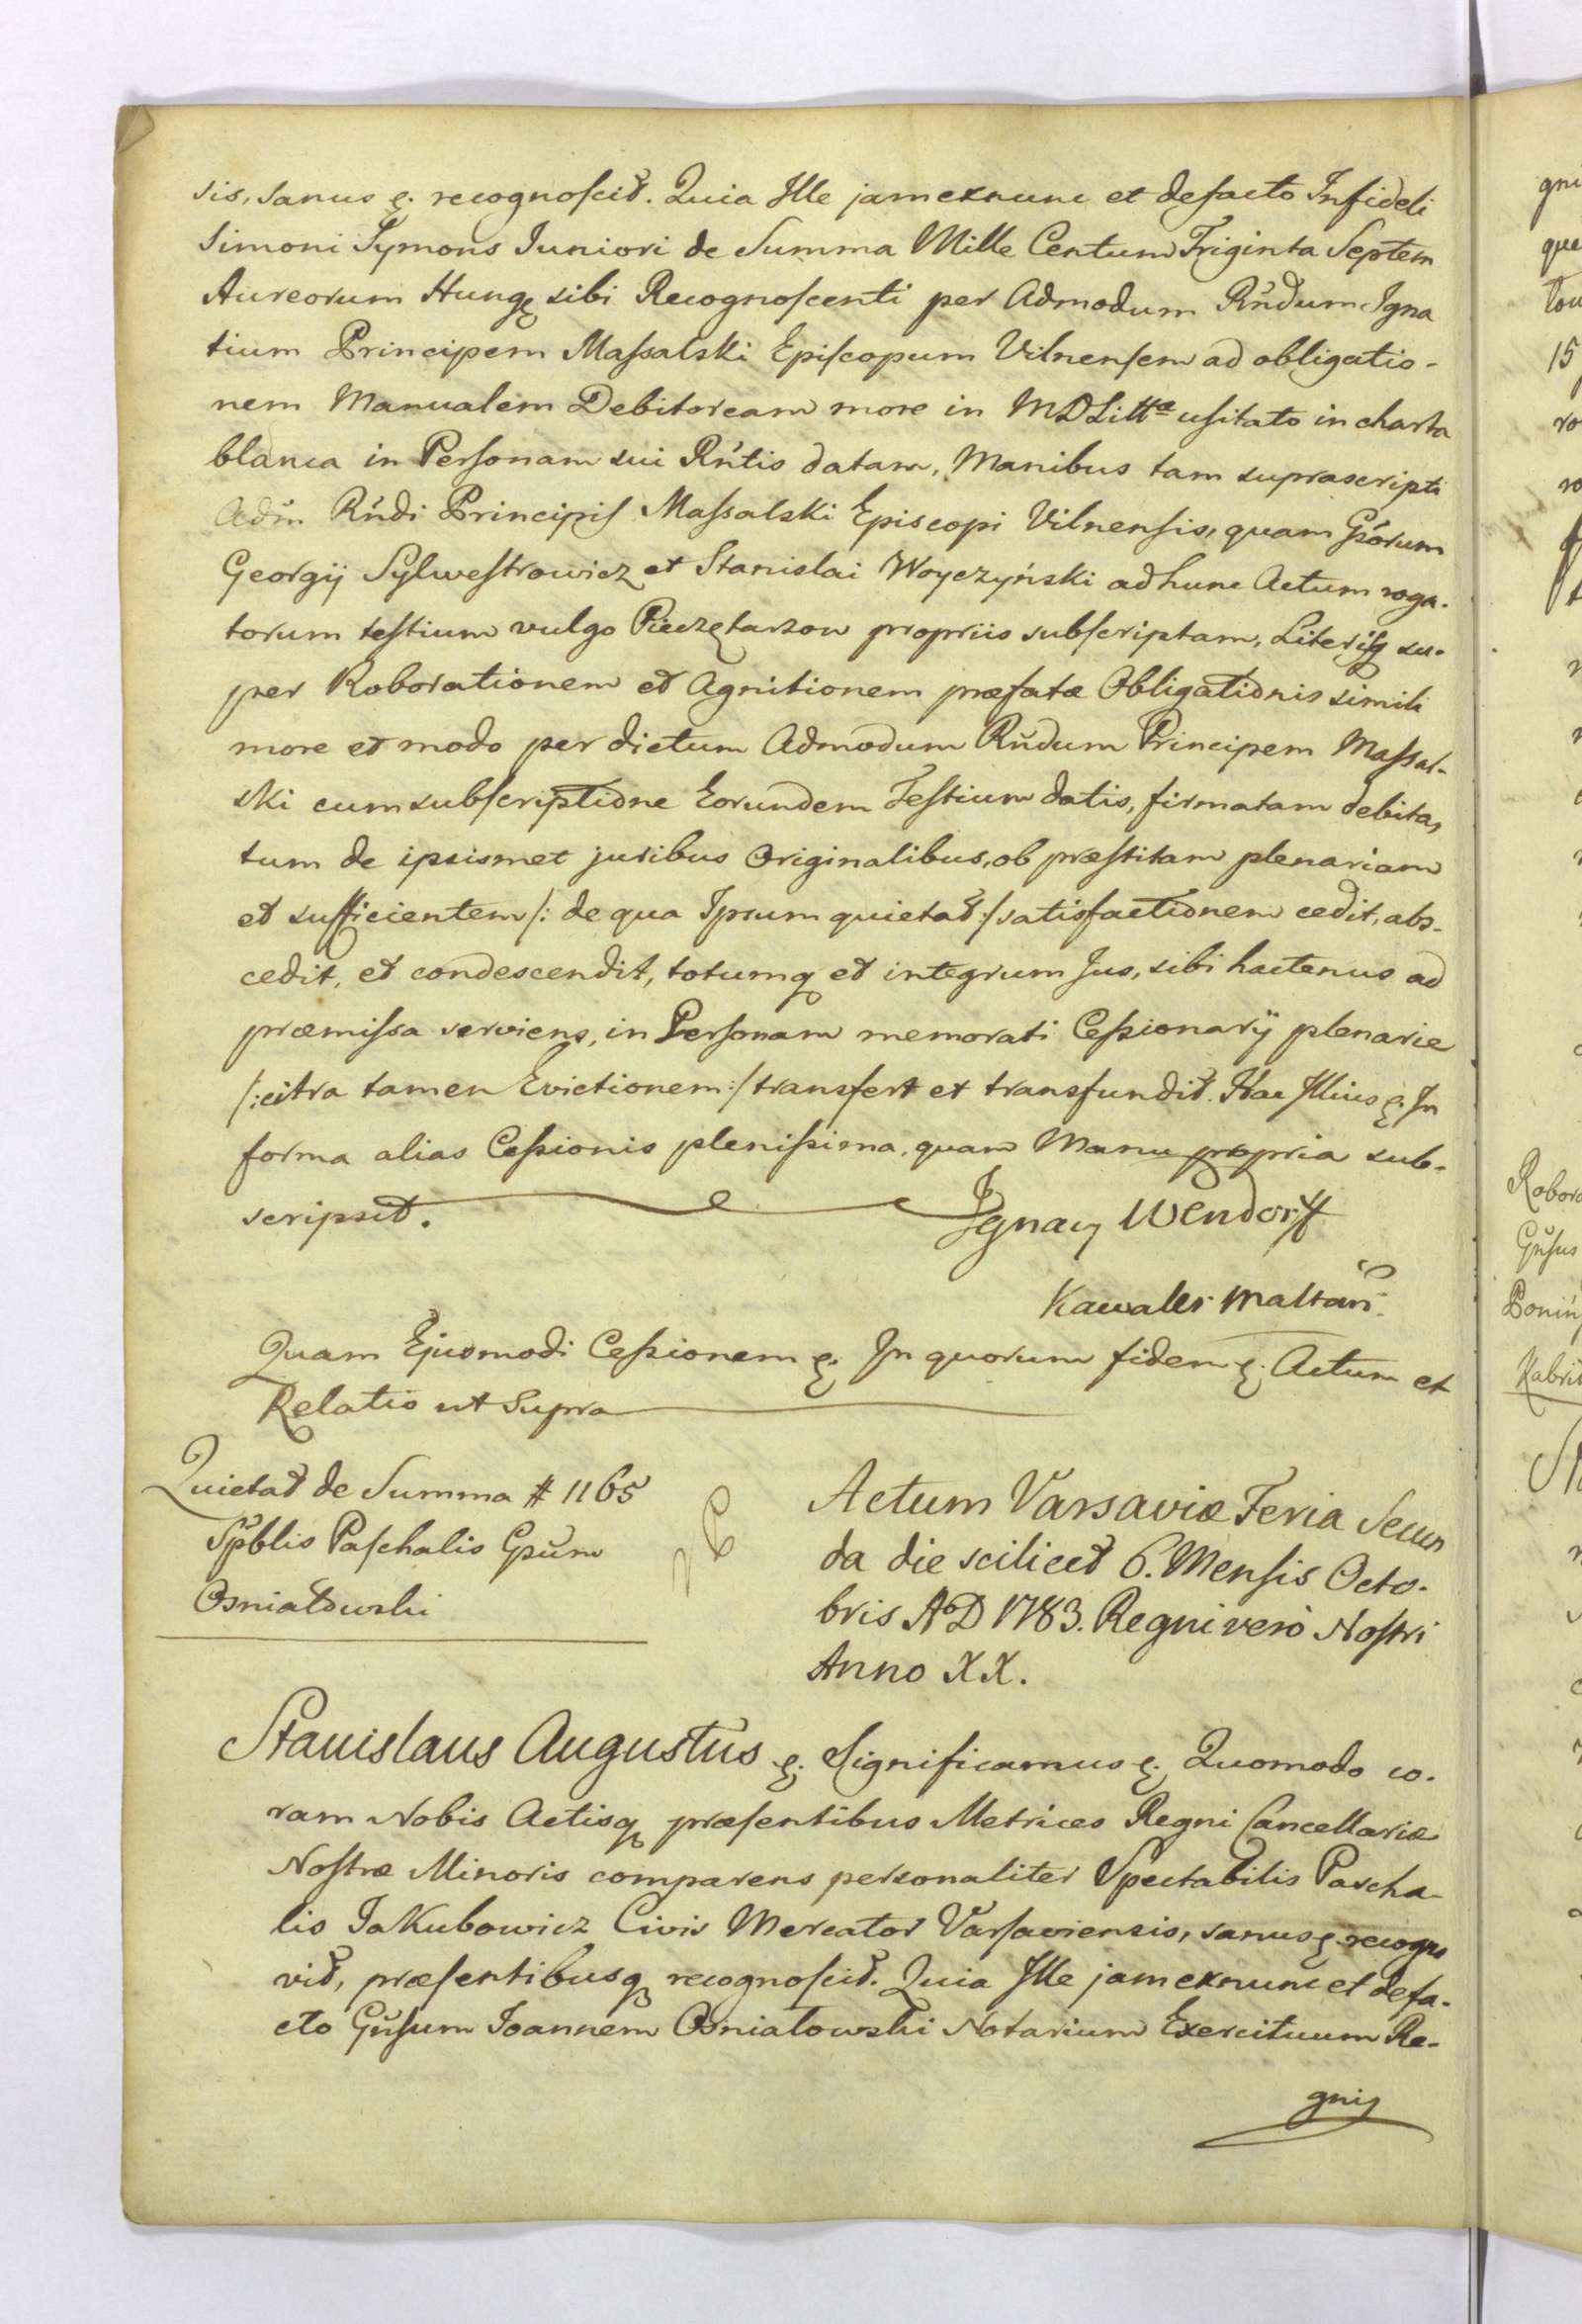 sis, sanus &. recognoscit. Quia Ille jam exnunc et defacto Infideli
Simoni Symons Juniori de Summa Mille Centum Triginta Septem
Aureorum Hung. sibi Recognoscenti per Admodum Rndum Igna
tium Principem Massalski Episcopum Vilnensem ad obligatio-
nem Manualem Debitoream more in MDLitta usitato in charta
blanca in Personam sui Rntis datam, Manibus tam suprascripti
Adm Rndi Principis Massalski Episcopi Vilnensis, quam Gsorum
Georgij Sylwestrowicz et Stanislai Woyczyński ad hunc Actum roga-
torum testium vulgo Pieczętarzow propriis subscriptam, Literisq su-
per Roborationem et Agnitionem præfatæ Obligationis simili
more et modo per dictum Admodum Rndum Principem Massal-
ski cum subscriptione Eorundem Testium datis, firmatam debitas,
tum de ipsismet juribus Originalibus, ob præstitam plenariam
et sufficientem /: de qua Ipsum quietat :/ satisfactionem cedit, abs-
cedit, et condescendit, totumq et integrum Jus, sibi hactenus ad
præmissa serviens, in Personam memorati Cessionarij plenarie
/: citra tamen Evictionem :/ transfert et transfundit. Hac Illius &. In
forma alias Cessionis plenissima, quam Manu propria sub-
scripsit.
Ignacy Wendorff
Kawaler Maltań
Quam Ejusmodi Cessionem &. In quorum fidem &. Actum et
Relatio ut Supra
Quietat de Summa # 1165
Spblis Paschalis Gsum
Osniałowski
Actum Varsaviæ Feria Secun
da die scilicet 6. Mensis Octo-
bris AoD 1783. Regni vero Nostri
Anno XX.
Stanislaus Augustus &. Significamus &. Quomodo co-
ram Nobis Actisq præsentibus Metrices Regni Cancellariæ
Nostræ Minoris comparens personaliter Spectabilis Pascha-
lis Jakubowicz Civis Mercator Varsaviensis, sanus &. recogno
vit, præsentibusq recognoscit. Quia Ille jam exnunc et defa-
cto Gnsum Joannem Osniałowski Notarium Exercituum Re-
gni